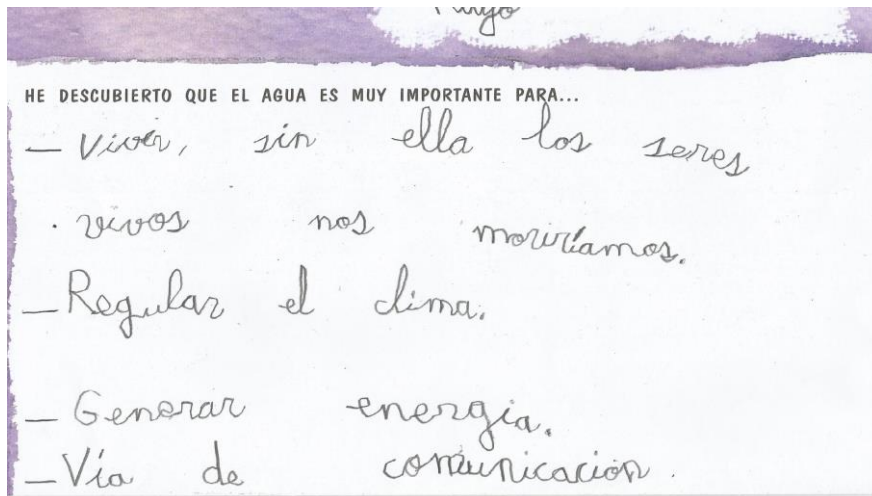 HE DESCUBIERTO QUE EL AGUA ES MUY IMPORTANTE PARA...
— Vivir, sin ella los seres
vivos nos moriríamos.
— Regular el clima.
— Generar energía.
— Vía de comunicación.